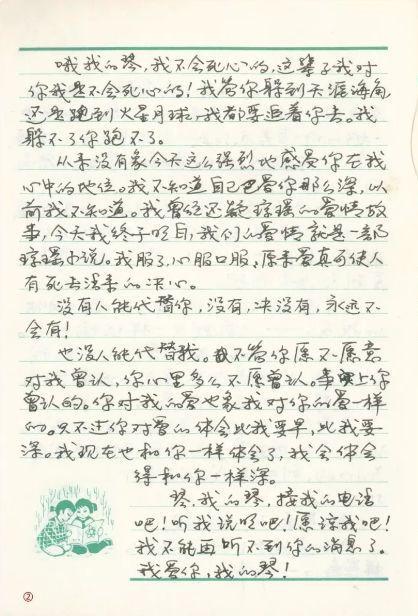 哦我的琴,我不会死心的,这辈子我对
你我是不会死心的!我管你躲到天涯海角
还是跑到火星月球,我都要追着你去。我
躲不了你跑不了。
从来没有象今天这么强烈地感受你在我
心中的地位。我不知道自己已爱你那么深,以
前我不知道。我曾经还疑琼瑶的爱情故
事,今天我终于明白,我们的爱情就是一部
琼瑶小说。我服了,心服口服,原来爱真可使人
有死去活来的决心。
没有人能代替你,没有,决没有,永远不
会有!
也没人能代替我。我不管你愿不愿意
对我曾认,你心里多么不愿曾认。事实上你
曾认的。你对我的爱也象我对你的爱一样
的。只不过你对爱的体会比我要早,比我要
深。我现在也和你一样体会了,我会体会
得和你一样深。
琴,我的琴,接我的电话
吧!听我说明吧!原谅我吧!
我不能再听不到你的消息了。
我爱你,我的琴!
②